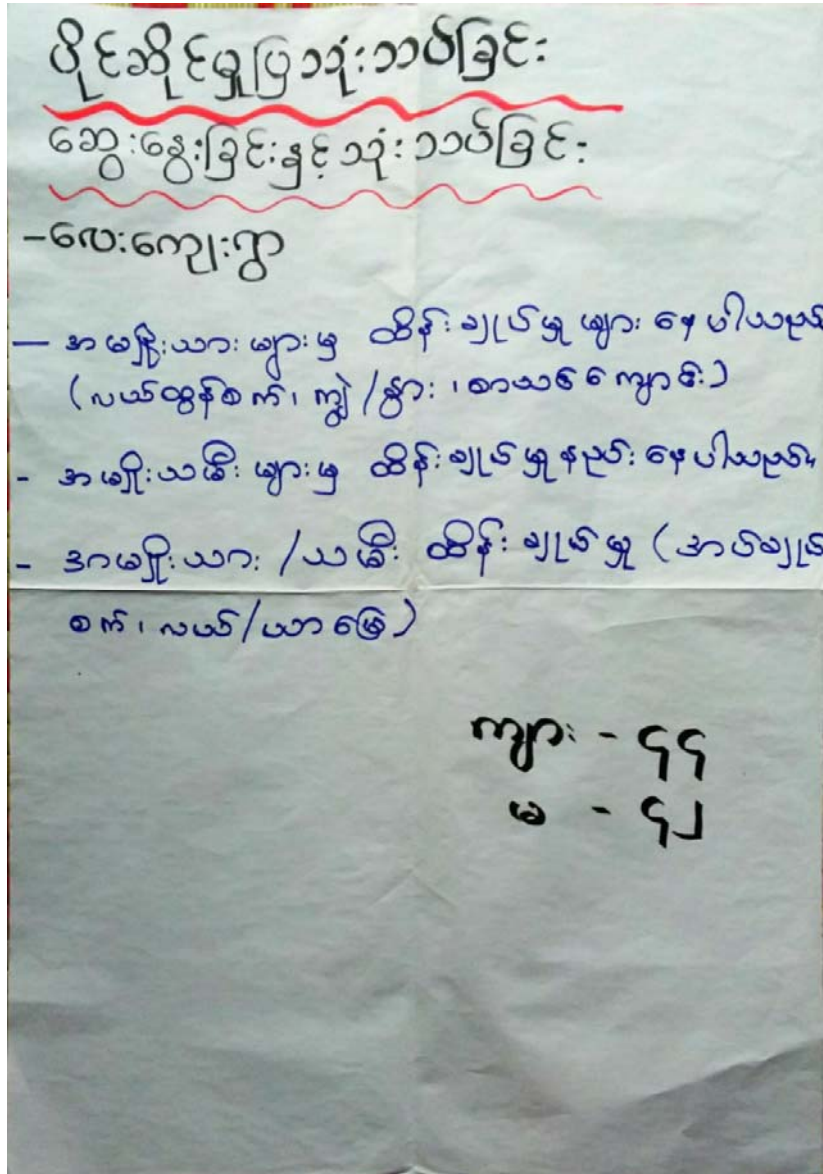 ပိုင်ဆိုင်မှုပြသုံးသပ်ခြင်း
ဆွေးနွေးခြင်းနှင့်သုံးသပ်ခြင်း
-လေးကျေးရွာ
- အမျိုးသားများမှ ထိန်းချုပ်မှုများနေပါသည်
(လယ်ထွန်စက်၊ ကျွဲ/နွား၊ စာသင်ကျောင်း)
- အမျိုးသမီးများမှ ထိန်းချုပ်မှုနည်းနေပါသည်။
- အမျိုးသား/သမီး ထိန်းချုပ်မှု (အပ်ချုပ်
စက်၊ လယ်/ယာမြေ)
ကျား - ၄၄
မ - ၄၂